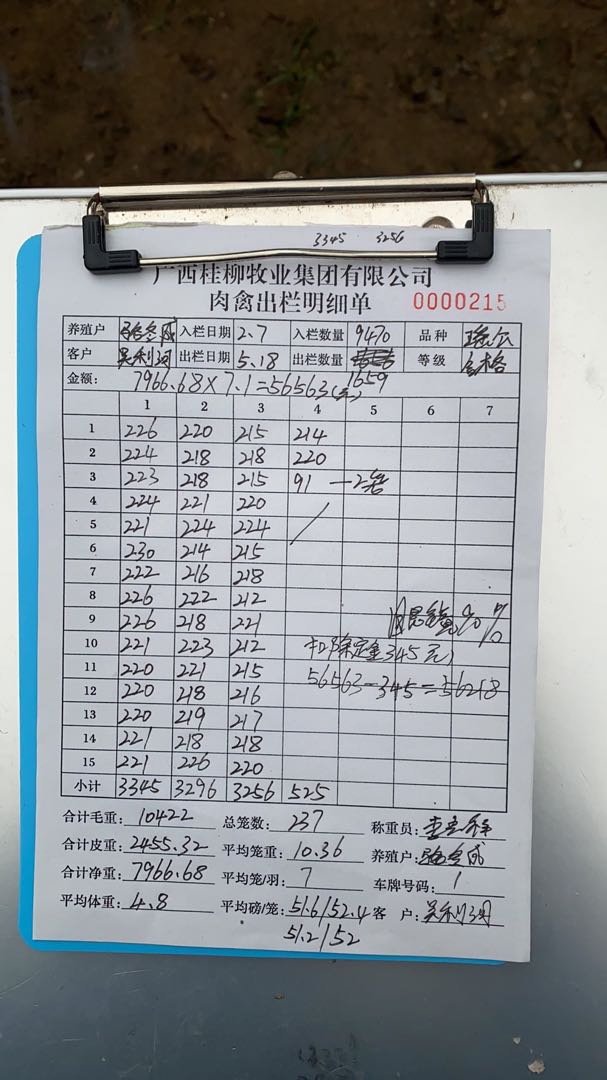 3345 3256
广西桂柳牧业集团有限公司
肉禽出栏明细单 0000215
养殖户 入栏日期 2.7 入栏数量 9470 品种 瑶尔
客户 吴利河 出栏日期 5.18 出栏数量 1659 等级 合格
金额: 7966.68×7.1=56563(元)
1 2 3 4 5 6 7
1 226 220 215 214
2 224 218 218 220
3 223 218 215 91 —2笼
4 224 221 220
5 221 224 224
6 230 214 215
7 222 216 218
8 226 222 212
9 226 218 221
10 221 223 212 扣除定金345元)
11 220 221 215 56563-345=56218
12 220 218 216
13 220 219 217
14 221 218 218
15 221 226 220
小计 3345 3296 3256 525
合计毛重: 10422 总笼数: 237 称重员:
合计皮重: 2455.32 平均笼重: 10.36 养殖户:
合计净重: 7966.68 平均笼/羽: 7 车牌号码: 1
平均体重: 4.8 平均磅/笼: 51.6/52.4 客户: 吴利河
51.2/52